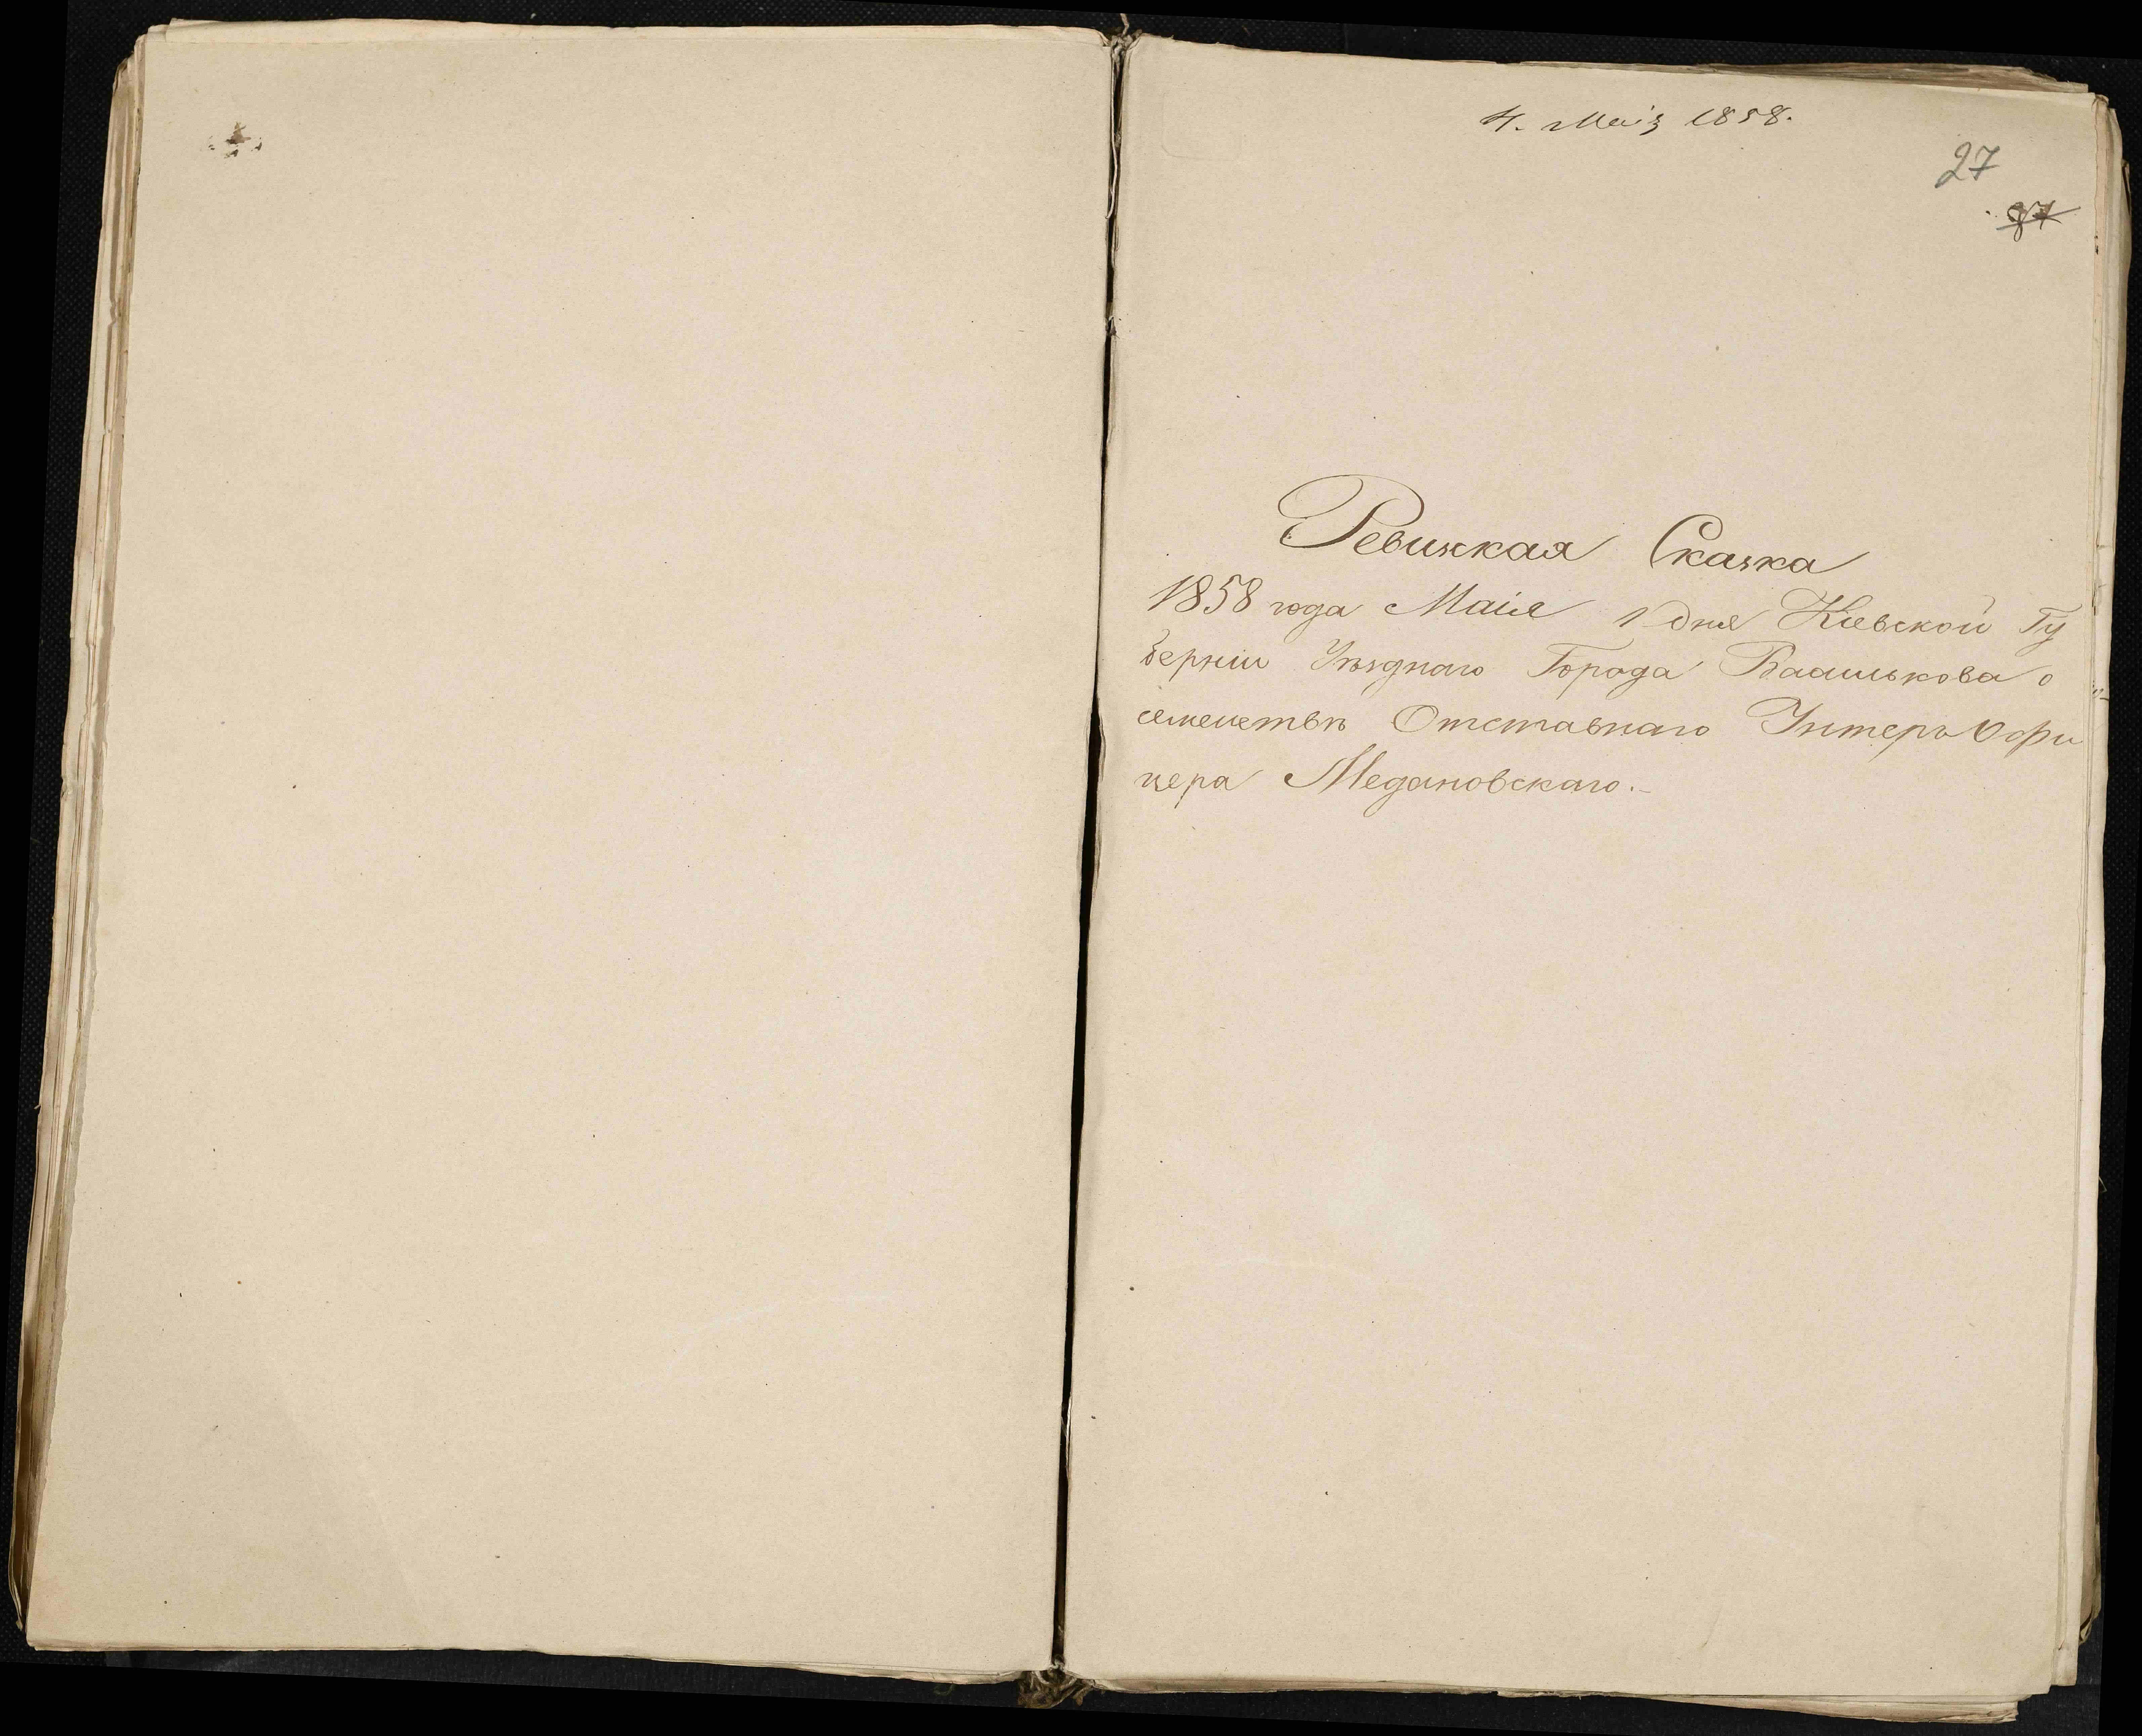 4. Маія 1858.
27
87
Ревизкая Сказка
1858 года Маія 1 дня Кіевской Гу
берніи Уѣзднаго Города Василькова о
семействѣ Отставнаго Унтеръ Офи
цера Медановскаго.-